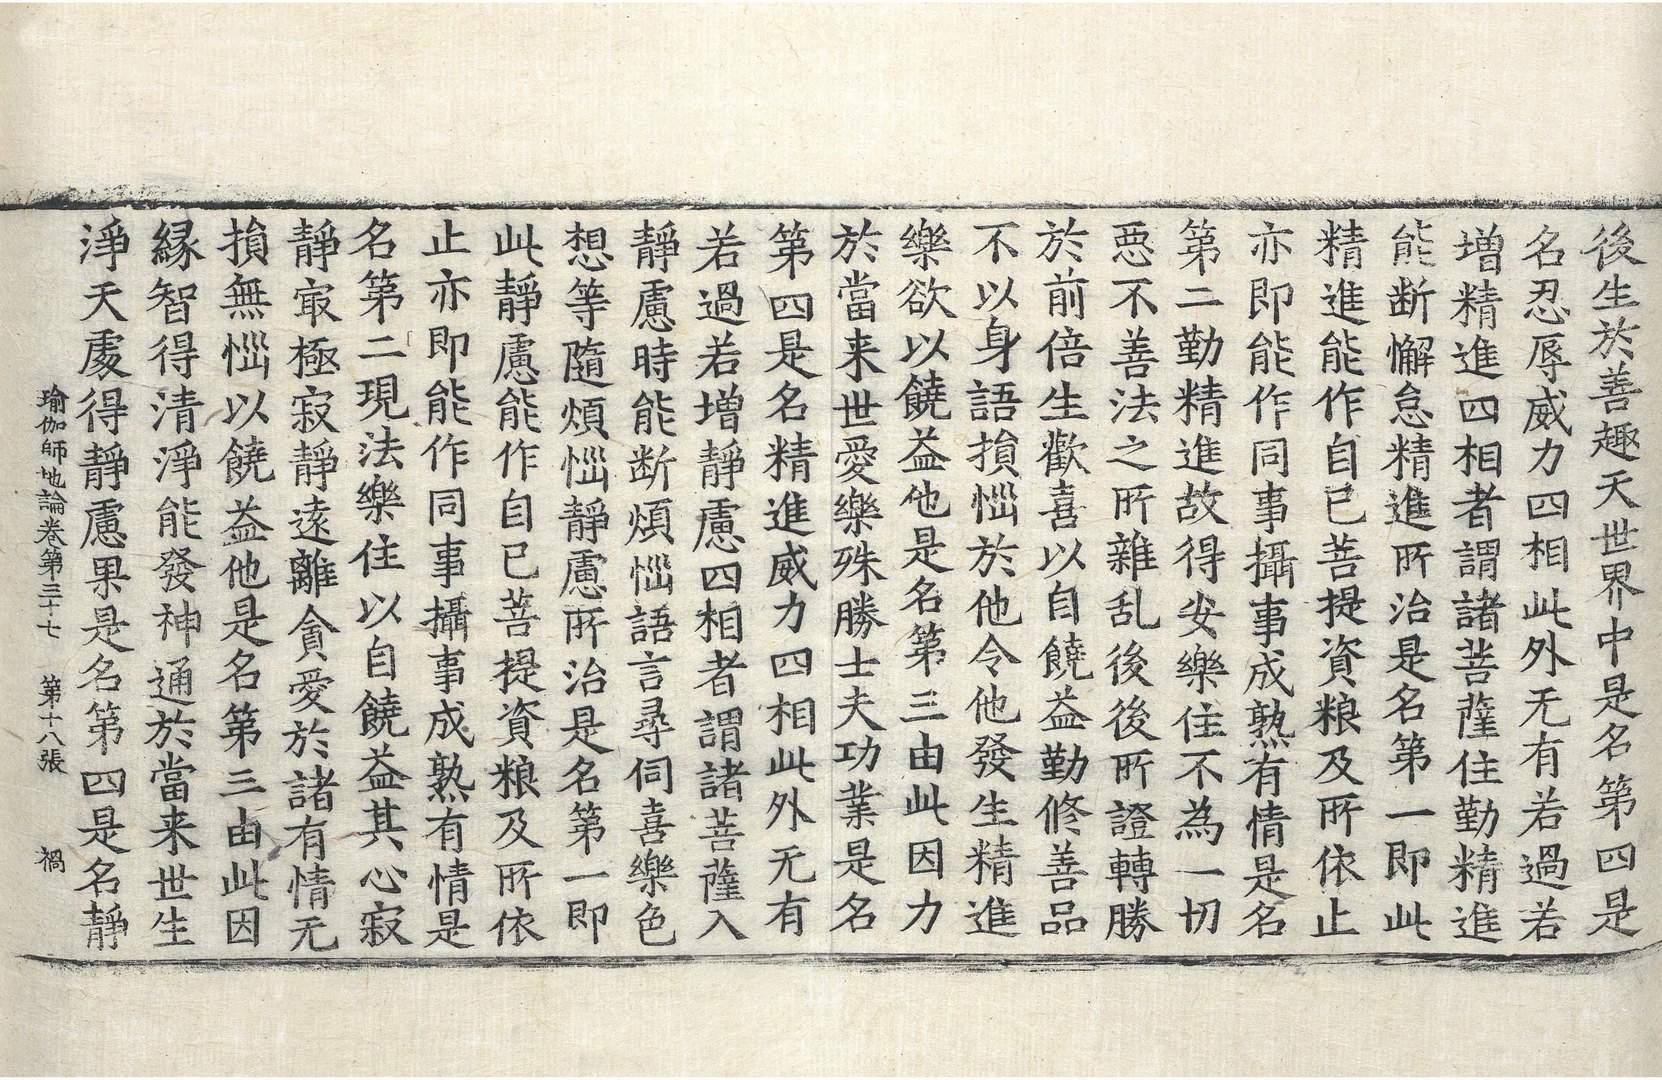 後生於善趣天世界中是名第四是
名忍辱威力四相此外无有若過若
增精進四相者謂諸菩薩住勤精進
能断懈怠精進所治是名第一即此
精進能作自已菩提資粮及所依止
亦即能作同事攝事成熟有情是名
第二勤精進故得安樂住不為一切
惡不善法之所雜乱後後所證轉勝
於前倍生歡喜以自饒益勤修善品
不以身語損惱於他令他發生精進
樂欲以饒益他是名第三由此因力
於當来世愛樂殊勝士夫功業是名
第四是名精進威力四相此外无有
若過若增靜慮四相者謂諸菩薩入
靜慮時能断煩惱語言尋伺喜樂色
想等隨煩惱靜慮所治是名第一即
此靜慮能作自已菩提資粮及所依
止亦即能作同事攝事成熟有情是
名第二現法樂住以自饒益其心寂
靜㝡極寂靜遠離貪愛於諸有情无
損無惱以饒益他是名第三由此因
緣智得清淨能發神通於當来世生
淨天處得靜慮果是名第四是名靜
瑜伽師地論卷第三十七 第十八張 禍